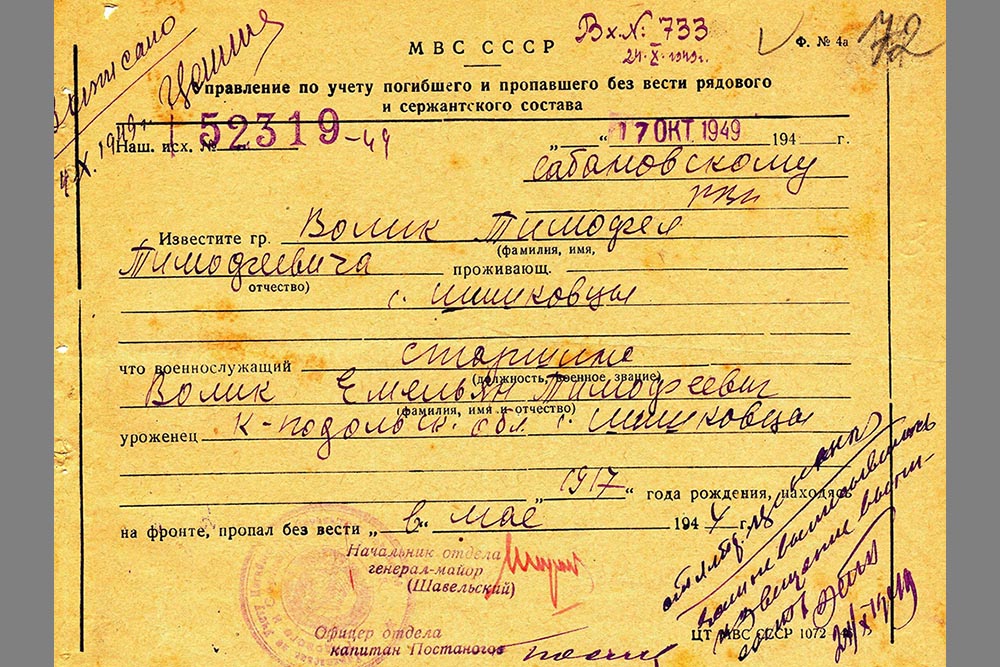 Вх. №: 733
24. X. 1949г.
МВС СССР
Ф. № 4а
Управление по учету погибшего и пропавшего без вести рядового
и сержантского состава
4/X. 1949г.
Наш. исх. № 52319-49
„ “ 17 ОКТ 1949 194 г.
Сабановскому
РВК
Известите гр. Волик Тимофея
(фамилия, имя,
Тимофеевича проживающ.
отчество)
с. Шишковцы
что военнослужащий старшина
(должность, военное звание)
Волик Емельян Тимофеевич
(фамилия, имя и отчество)
уроженец К-подольск. обл. с. Шишковцы
„ 1917 “ года рождения, находясь
на фронте, пропал без вести „в“ мае 1944 г.
Начальник отдела
генерал-майор
(Шавельский)
Офицер отдела
капитан Постаногов
извещение
24/X 1949
ЦТ МВС СССР 1072